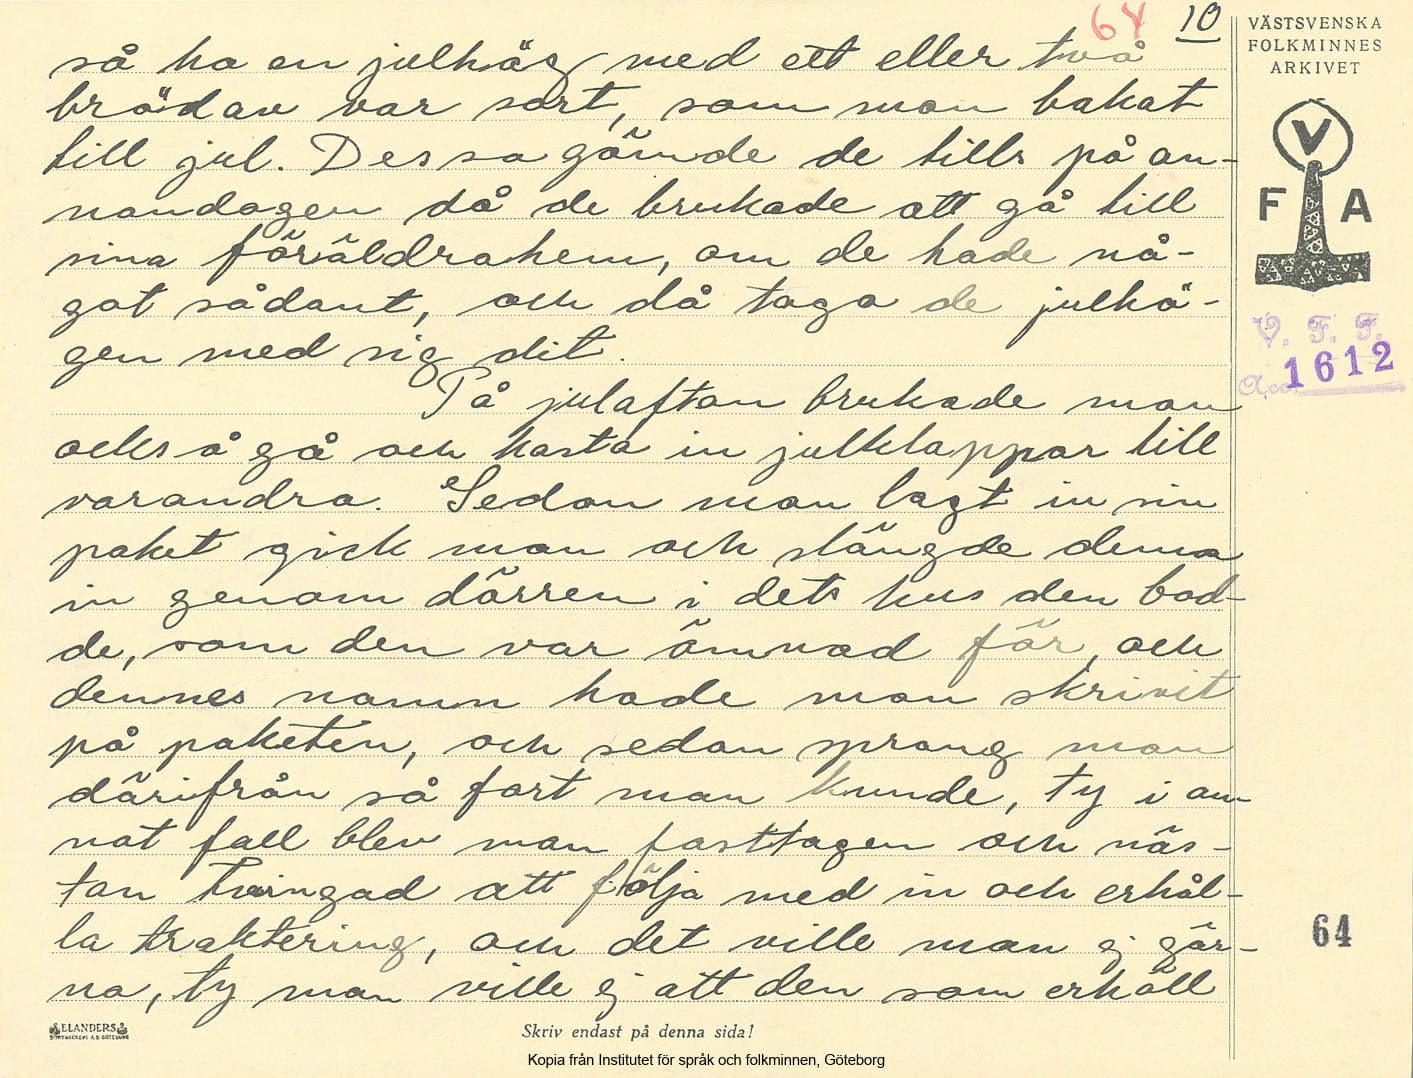 64 10
så ha en julhög med ett eller två
bröd av var sort, som man bakat
till jul. Dessa gömde de tills på an-
nandagen då de brukade att gå till
sina föräldrahem, om de hade nå-
got sådant, och då taga de julhö-
gen med sig dit.
På julafton brukade man
också gå och kasta in julklappar till
varandra. Sedan man lagt in sin
paket gick man och slängde denna
in genom dörren i dets hus den bod-
de, som den var ämnad för, och
dennes namn hade man skrivit
på paketen, och sedan sprang man
därifrån så fort man kunde, ty i an-
nat fall blev man fasttagen och näs-
tan tvingad att följa med in och erhål-
la traktering, och det ville man ej gär-
na, ty man ville ej att den som erhöll
VÄSTSVENSKA
FOLKMINNES
ARKIVET
V
F A
V. F. F.
Acc. 1612
64
ELANDERS
BOKTRYCKERI A.B. GÖTEBORG
Skriv endast på denna sida!
Kopia från Institutet för språk och folkminnen, Göteborg